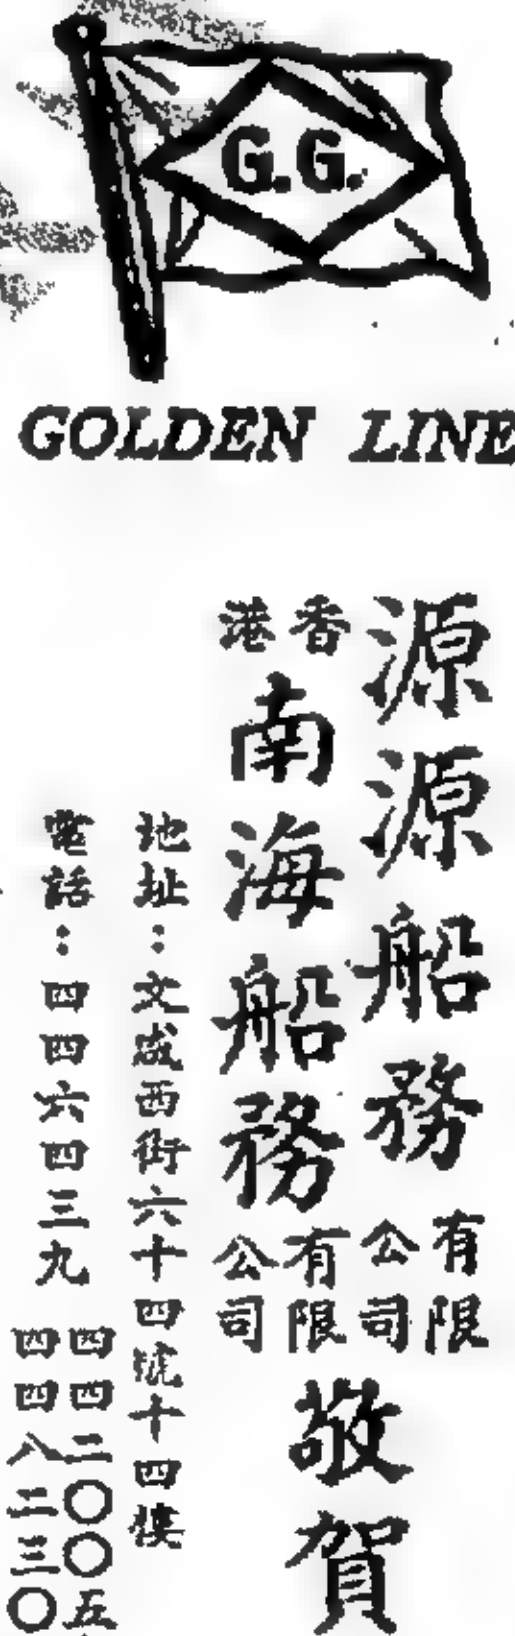 G.G.
GOLDEN LINE
源源船務有限公司
香港南海船務有限公司
敬賀
地址：文咸西街六十四號十四樓
電話：四四六四三九
四四二〇〇五
四四八二三〇